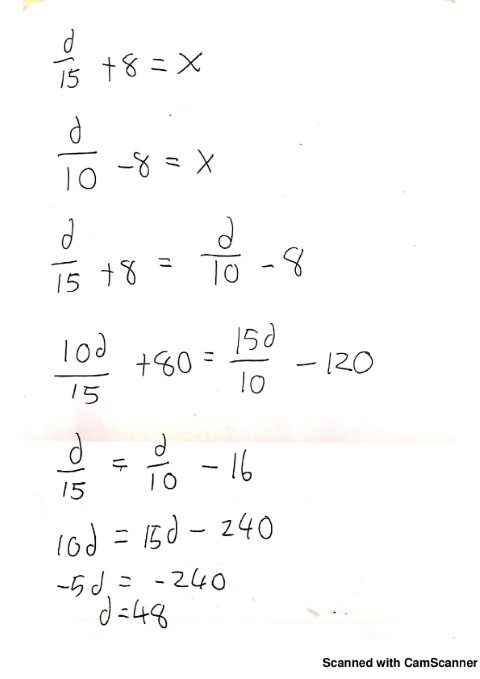 d/15 + 8 = x
d/10 - 8 = x
d/15 + 8 = d/10 - 8
10d/15 + 80 = 15d/10 - 120
d/15 = d/10 - 16
10d = 15d - 240
-5d = -240
d = 48
Scanned with CamScanner